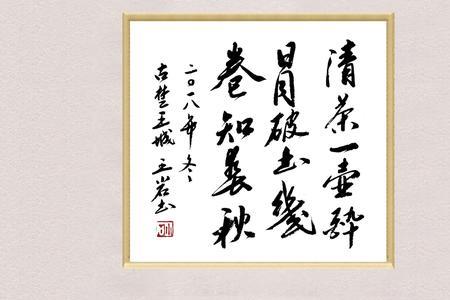 清茶一壶醉
日月破书幾
卷知春秋
二〇一八年冬
古楚王城 王岩书